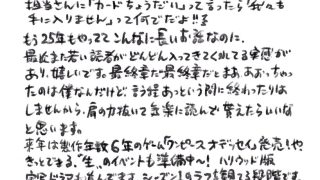 担当さんに「カードちょうだい」って言ったら「我々も
手に入りません」って何でだよ!!
もう25年もやっててこんなに長いお話なのに、
最近また若い読者がどんどん入ってきてくれてる実感が
あり、嬉しいです。最終章だ最終章だとまあ、あおっちゃ
ったのは僕なんだけど言う程あっという間に終わったりは
しませんから、肩の力抜いて音楽に読んで貰えたらいいな
と思います。
来年は製作年数6年のゲーム「ワンピースオデッセイ」発売!や
きっとできる、"生"のイベントも準備中〜! ハリウッド版
実写ドラマも進んでます。シーズン1のラフを観てる段階です。